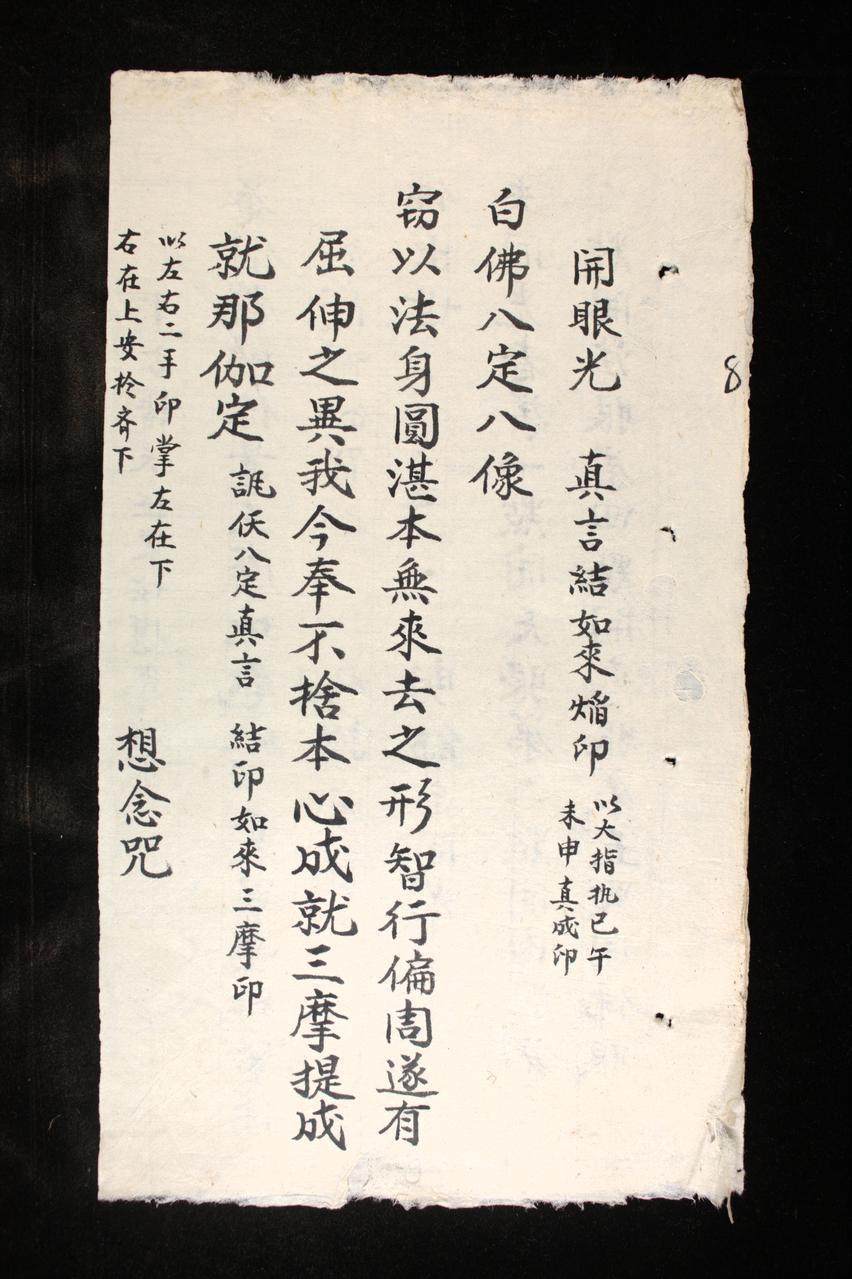 8
開眼光　真言結如來焔印
以大指執巳午
未申真成印
白佛八定八像
窃以法身圓湛本無來去之形智行偏周遂有
屈伸之異我今奉不捨本心成就三摩提成
就那伽定　誂伏八定真言　結印如來三摩印
以左右二手印掌左在下
右在上安扵齐下　想念咒